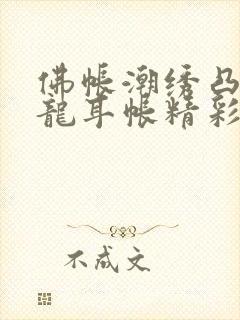 佛帳潮绣凸
龍耳帐精彩
不成文